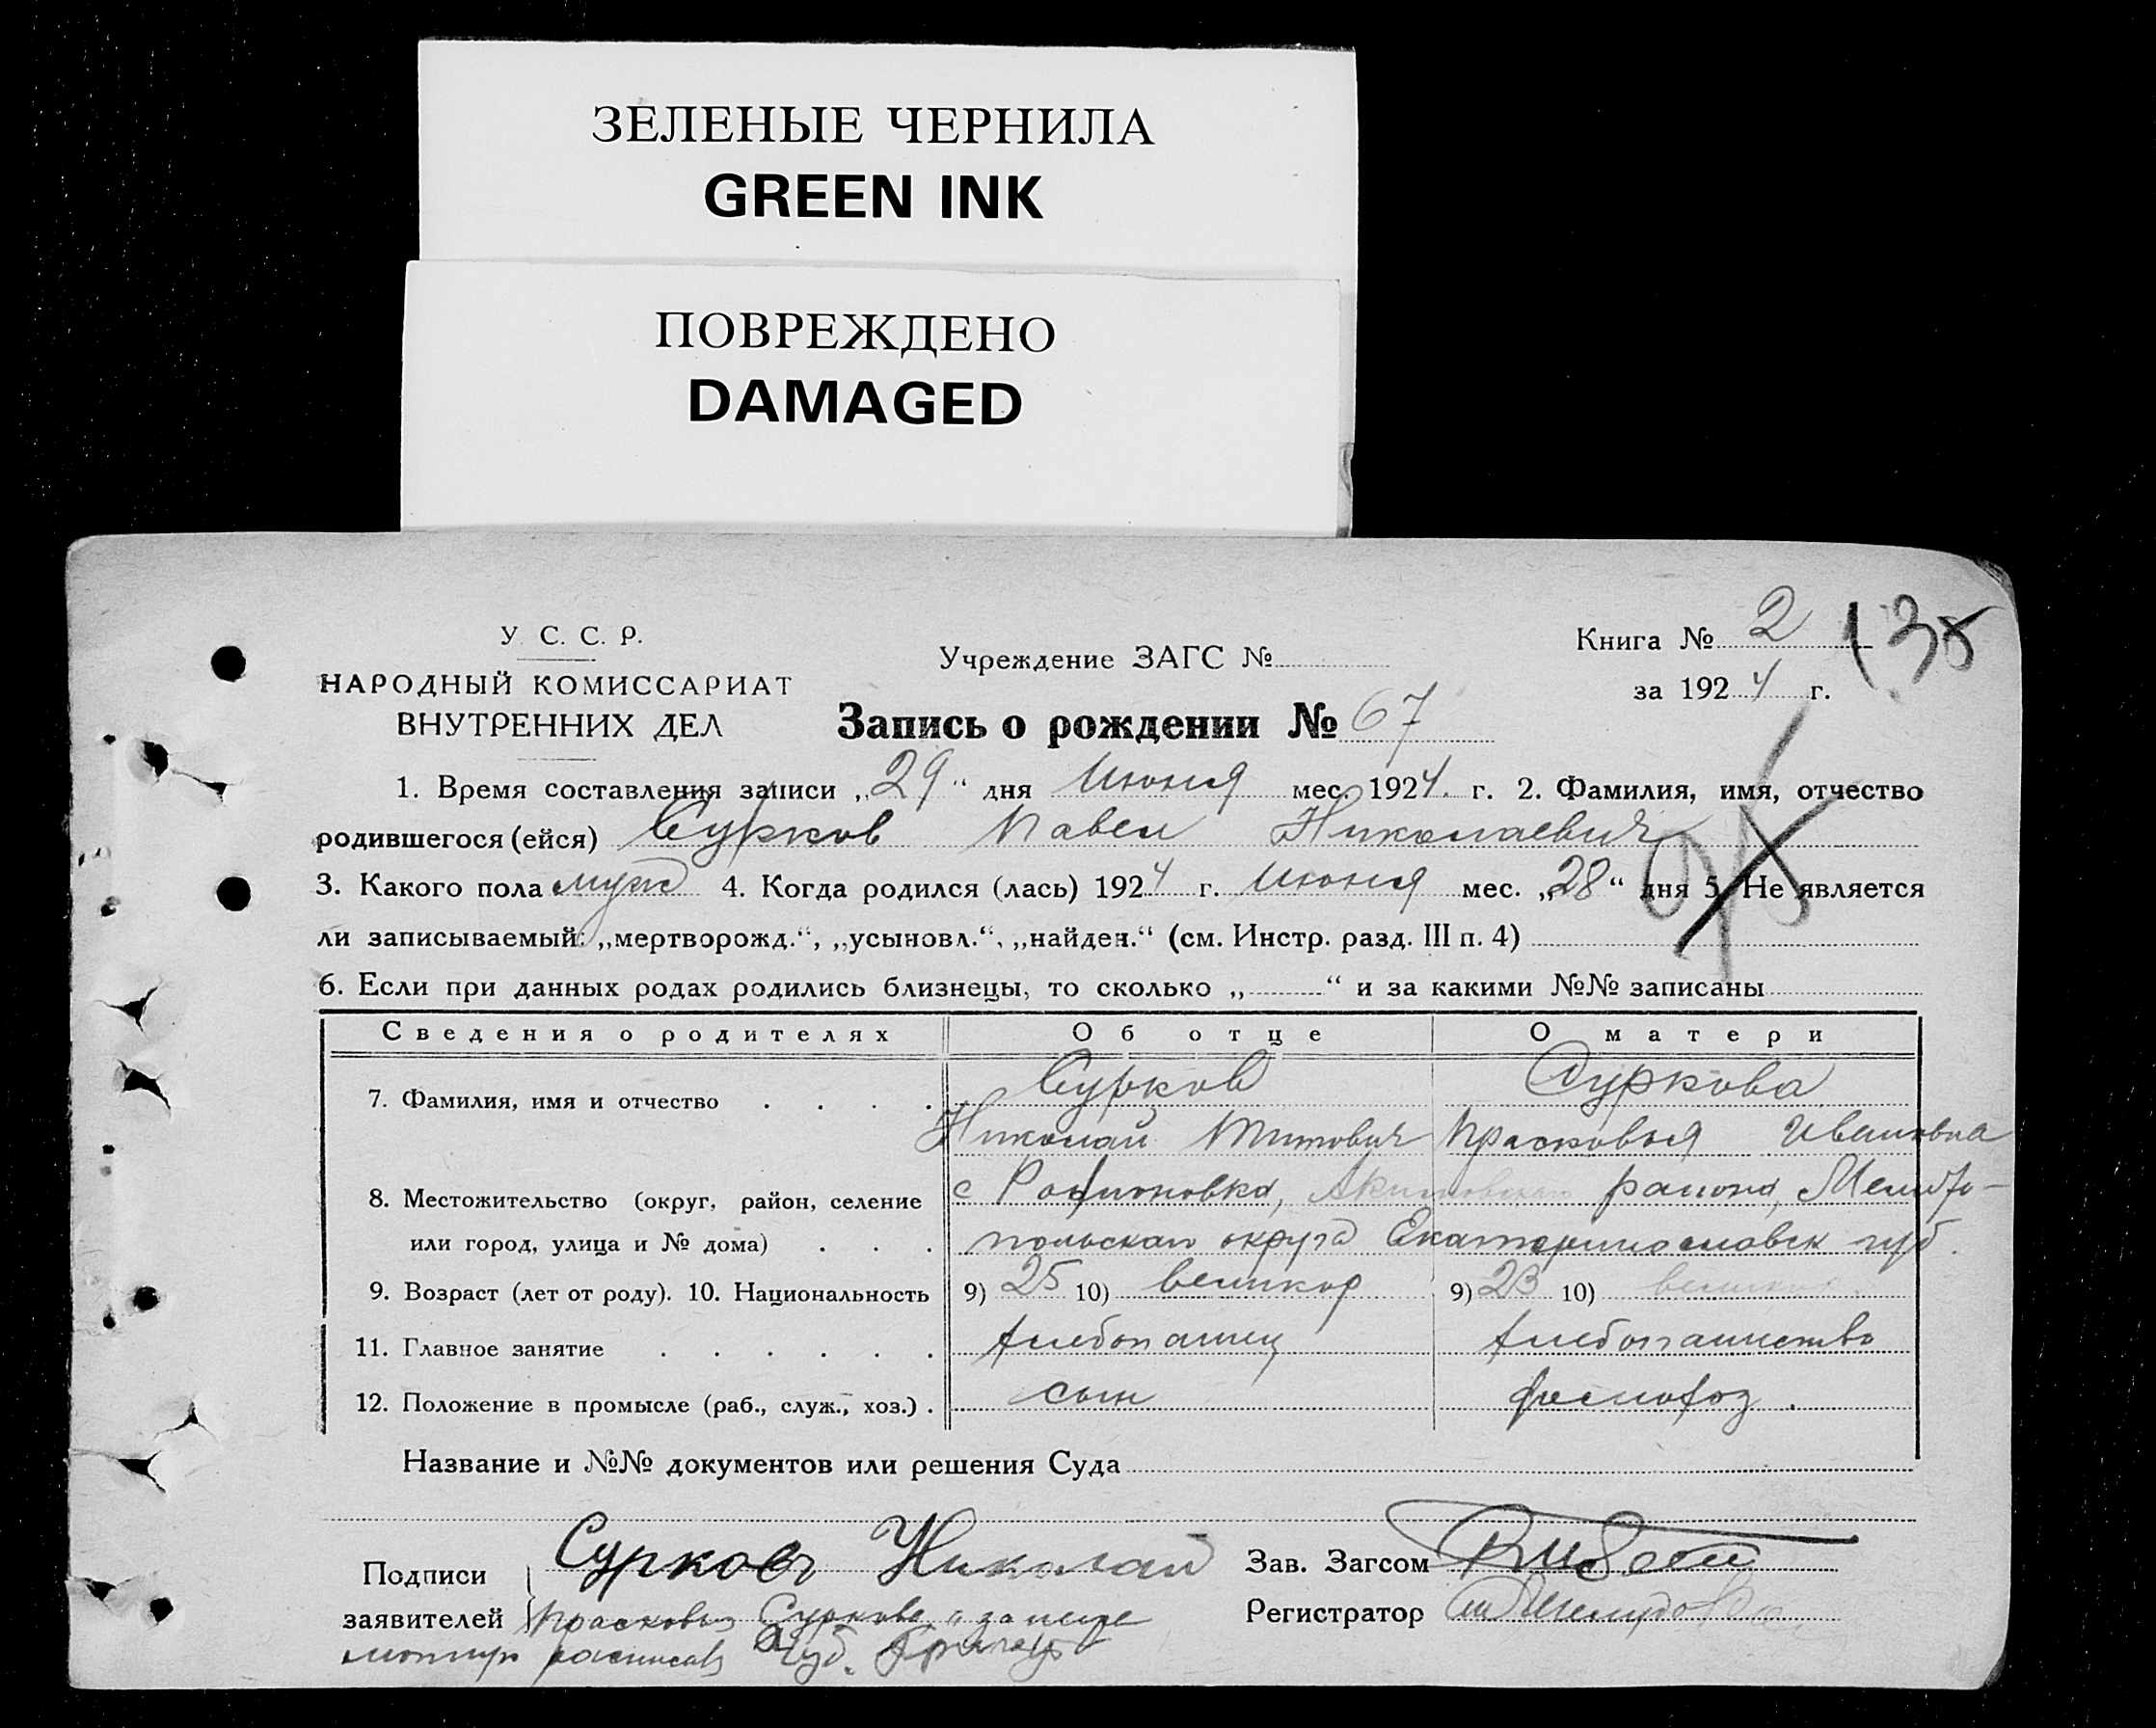 ЗЕЛЕНЫЕ ЧЕРНИЛА
GREEN INK
ПОВРЕЖДЕНО
DAMAGED
У. С. С. Р.
НАРОДНЫЙ КОМИССАРИАТ
ВНУТРЕННИХ ДЕЛ
Учреждение ЗАГС №
Книга № 2
138
за 1924 г.
Запись о рождении № 67
1. Время составления записи „29“ дня Июня мес. 1924. г. 2. Фамилия, имя, отчество
родившегося (ейся) Сурков Павел Николаевич
3. Какого пола муж 4. Когда родился (лась) 1924 г. Июня мес. „28“ дня 5. Не является
ли записываемый: „мертворожд.“, „усыновл.“, „найден.“ (см. Инстр. разд. III п. 4)
6. Если при данных родах родились близнецы, то сколько „ “ и за какими №№ записаны
Сведения о родителях Об отце О матери
7. Фамилия, имя и отчество . . . . Сурков Суркова
Николай Титович Прасковья Ивановна
8. Местожительство (округ, район, селение с Родионовка, Акимовского района, Мелито-
или город, улица и № дома) . . . польскаго округа Екатеринославск губ.
9. Возраст (лет от роду). 10. Национальность 9) 25 10) великор 9) 23 10) великор.
11. Главное занятие . . . . . . хлебопашец хлебопашество
12. Положение в промысле (раб., служ., хоз.) . сын
Название и №№ документов или решения Суда
Подписи Сурковъ Николай Зав. Загсом
заявителей Прасковья Суркова, а за нее Регистратор